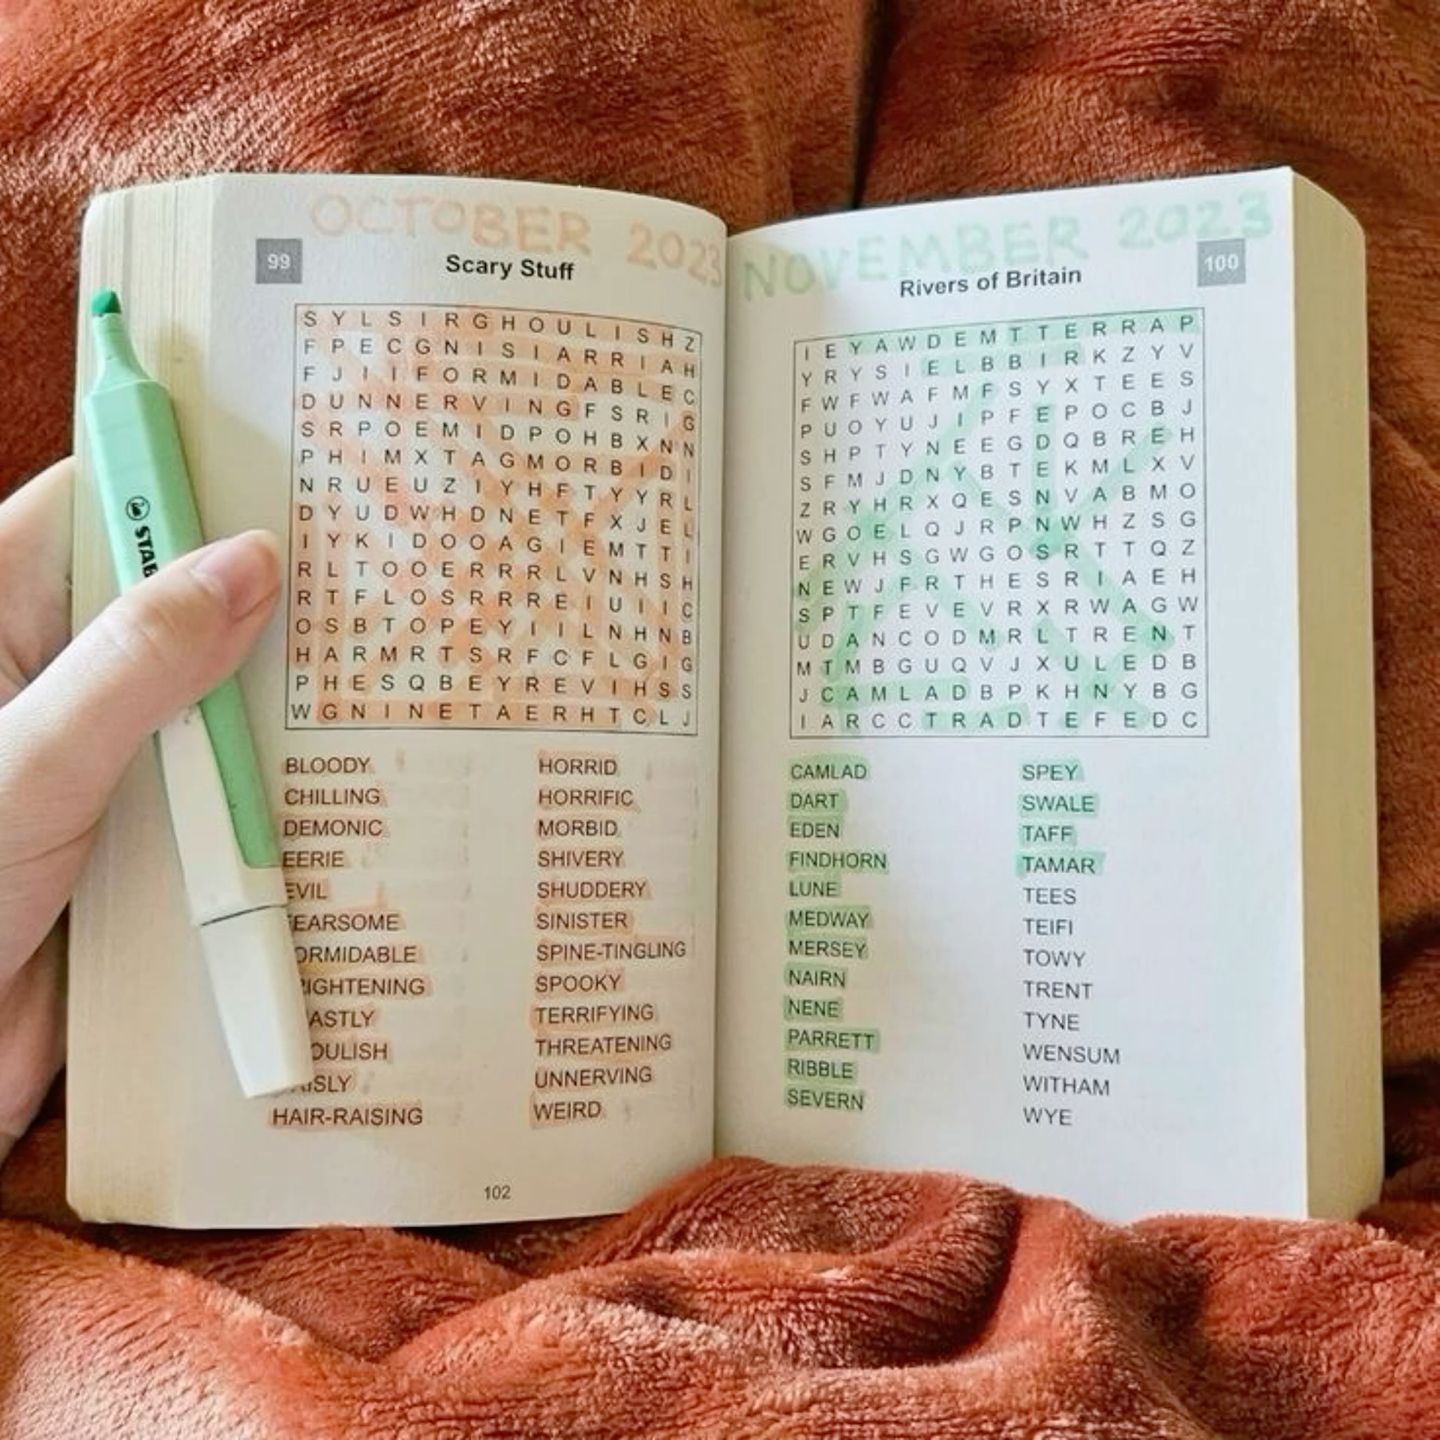 OCTOBER 2023
99
Scary Stuff
SYLSIRGHOULISHZ
FPECGNISIARRIAH
FJIIFORMIDABLEC
DUNNERVINGFSRIG
SRPOEMIDPOHBXNN
PHIMXTAGMORBIDI
NRUEUZIYHFTYYRL
DYUDWHDNETFXJEL
IYKIDOOAGIEMTTI
RLTOOERRRLVNHSH
RTFLOSRRREIUIIC
OSBTOPEYIILNHNB
HARMRTSRFCFLGIG
PHESQBEYREVIHSS
WGNINETAERHTCLJ
BLOODY
CHILLING
DEMONIC
EERIE
EVIL
EARSOME
ORMIDABLE
RIGHTENING
ASTLY
OULISH
ISLY
HAIR-RAISING
HORRID
HORRIFIC
MORBID
SHIVERY
SHUDDERY
SINISTER
SPINE-TINGLING
SPOOKY
TERRIFYING
THREATENING
UNNERVING
WEIRD
102
STAB
NOVEMBER 2023
100
Rivers of Britain
IEYAWDEMTTERRAP
YRYSIELBBIRKZYV
FWFWAFMFSYXTEES
PUOYUJIPFEPOCBJ
SHPTYNEEGDQBREH
SFMJDNYBTEKMLXV
ZRYHRXQESNVABMO
WGOELQJRPNWHZSG
ERVHSGWGOSRTTQZ
NEWJFRTHESRIAEH
SPTFEVEVRXRWAGW
UDANCODMRLTRENT
MTMBGUQVJXULEDB
JCAMLADBPKHNYBG
IARCCTRADTEFEDC
CAMLAD
DART
EDEN
FINDHORN
LUNE
MEDWAY
MERSEY
NAIRN
NENE
PARRETT
RIBBLE
SEVERN
SPEY
SWALE
TAFF
TAMAR
TEES
TEIFI
TOWY
TRENT
TYNE
WENSUM
WITHAM
WYE